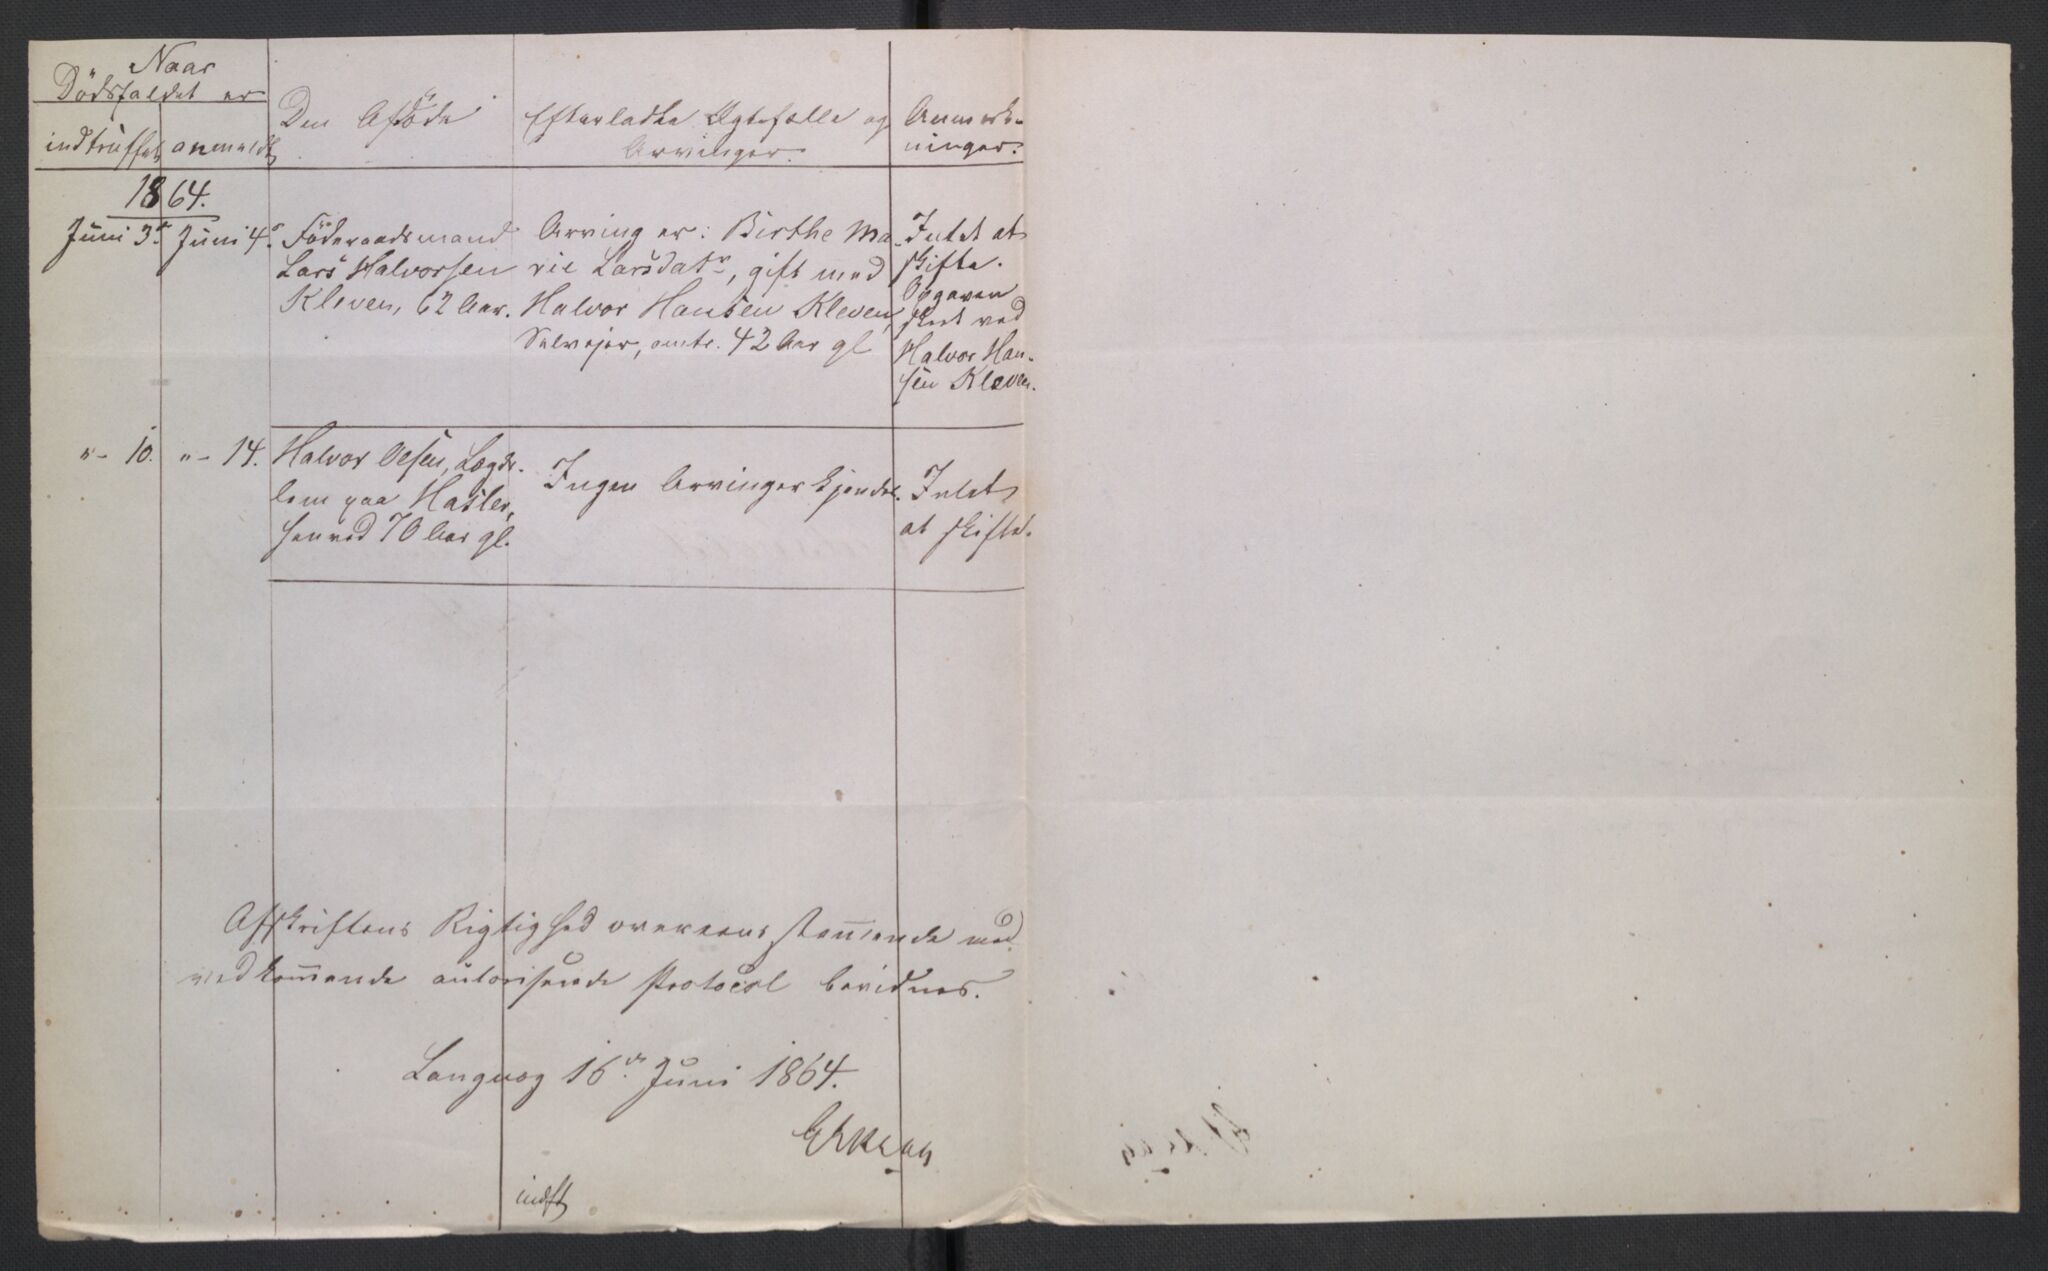 Naar
Dödsfaldet er
indtruffet anmeldt
Den Afdöde
Efterladte Ægtefælle og
Arvinger.
Anmærk-
ninger.
1864.
Juni 3d Juni 4d
Föderaadsmand
Lars Halvorsen
Kleven, 62 Aar.
Arving er: Birthe Ma-
rie Larsdatr, gift med
Halvor Hansen Kleven,
Selveier, omtr. 42 Aar gl
Intet at
skifte.
Opgaven
skeet ved
Halvor Han-
sen Kleven.
"- 10. "- 14.
Halvor Olsen, Lægds-
lem paa Hasler,
henved 70 Aar gl.
Ingen Arvinger kjendes.
Intet
at skifte.
Afskriftens Rigtighed overeensstemmende med
vedkommende autoriserede Protocol bevidnes.
Langvog 16de Juni 1864.
indft